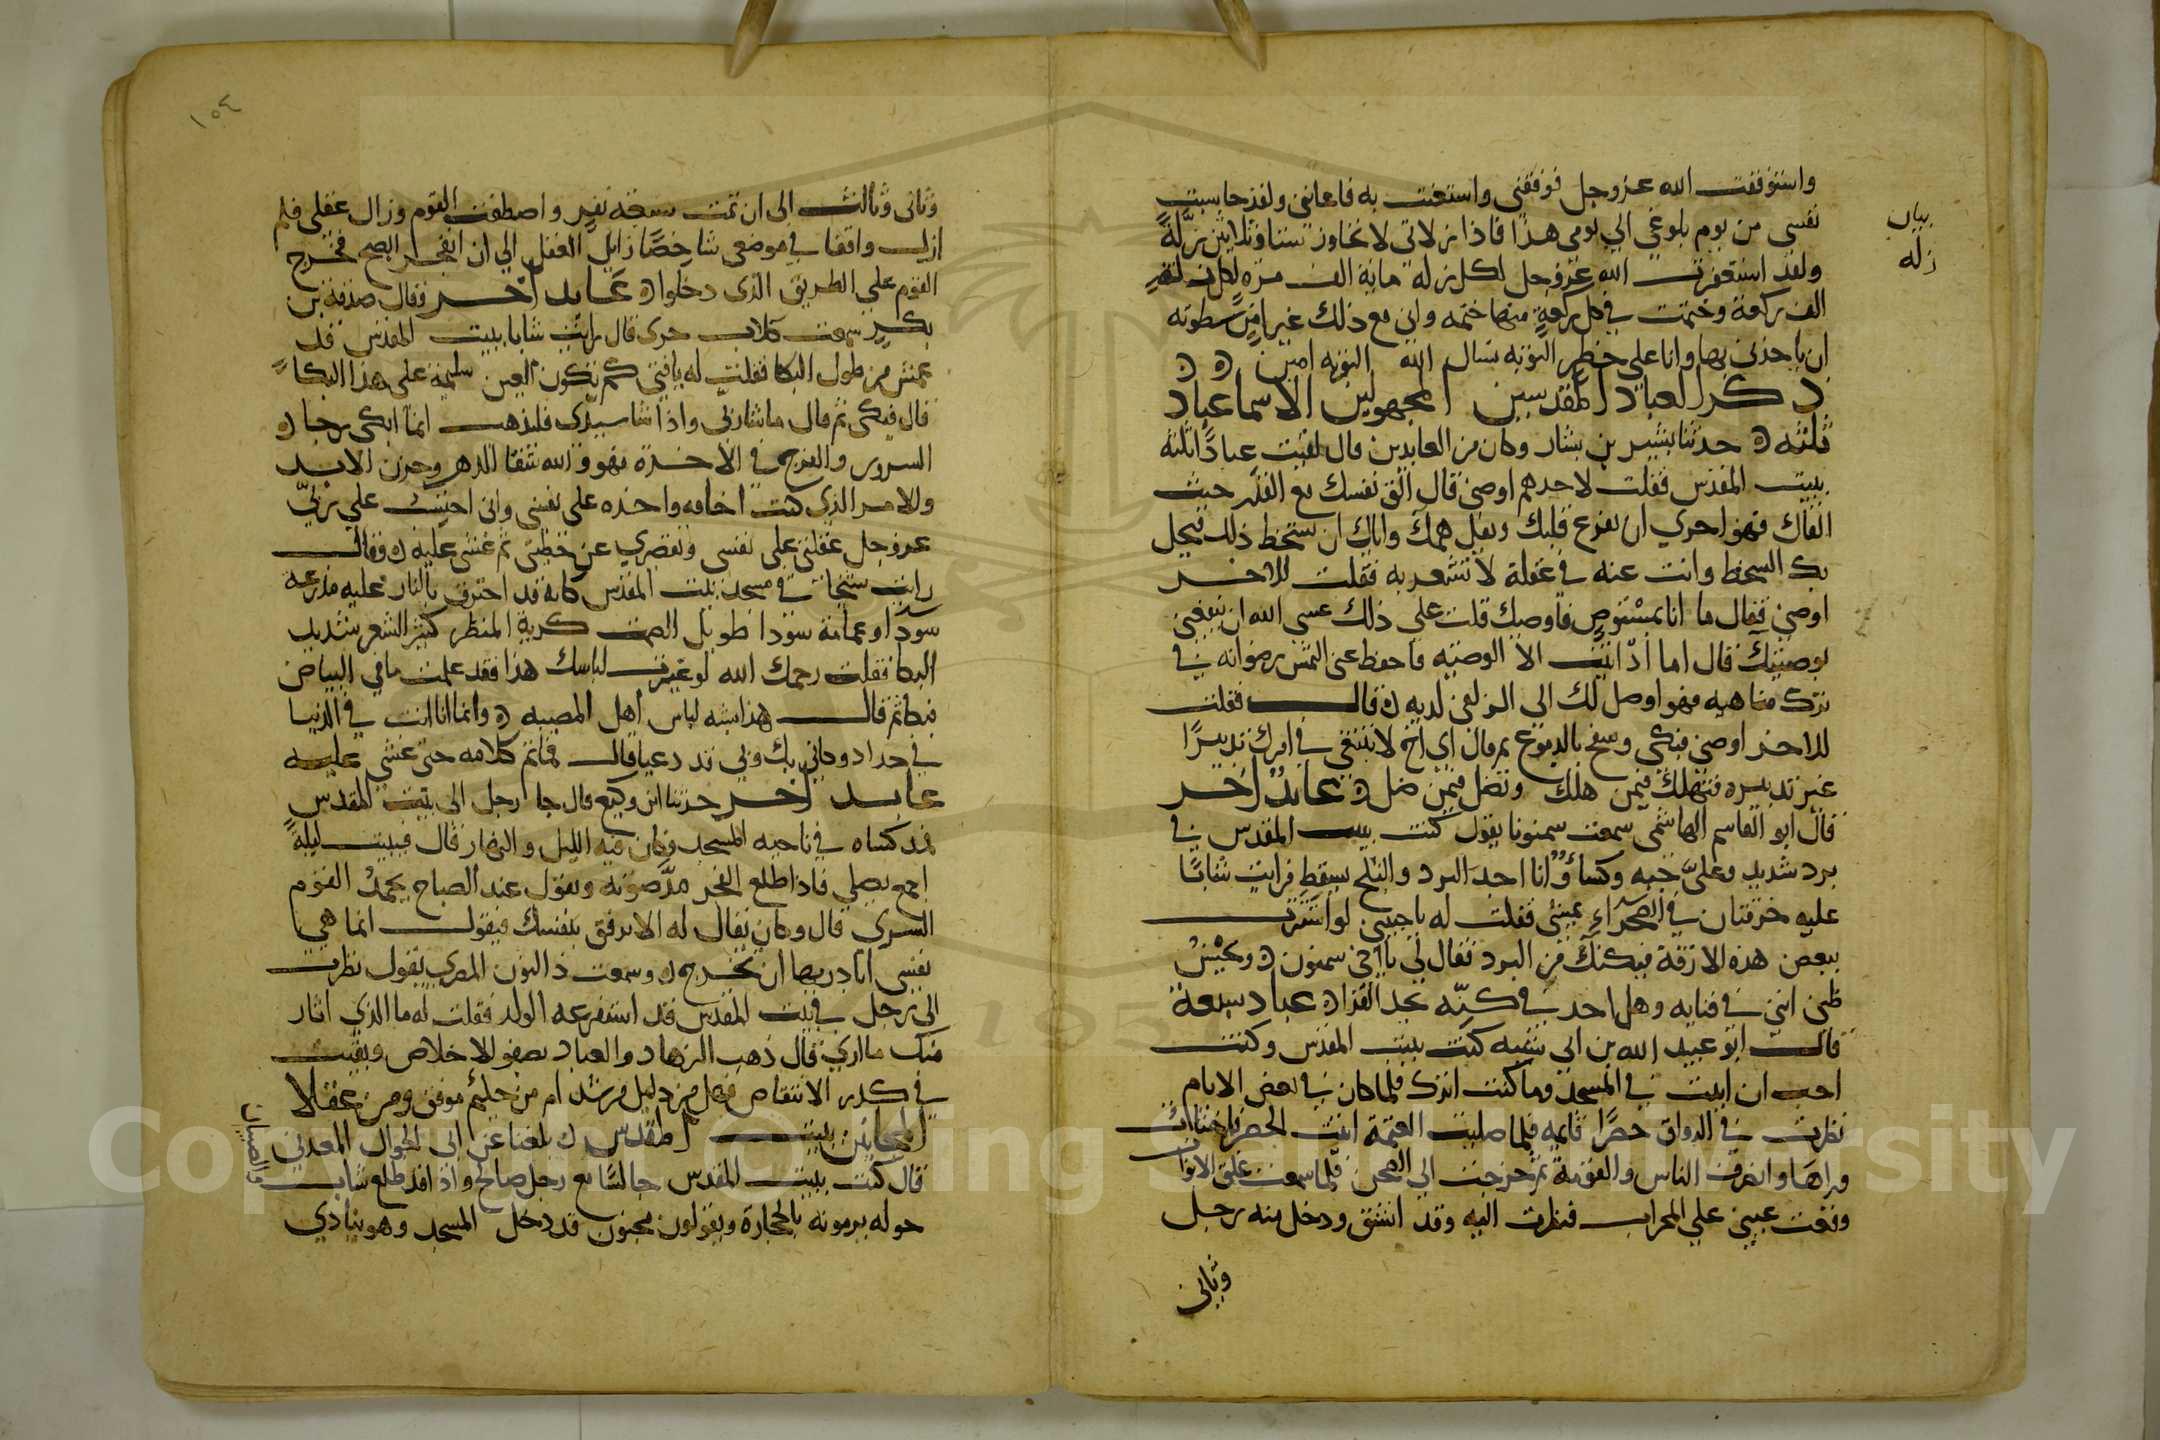 واستوفقت الله عز وجل فوفقني واستعنت به فاعانني ولقد حاسبت
نفسي من يوم بلوغي الي يومي هذا فاذا زلاتي لا تجاوز ستا وثلاثين زلة
ولقد استغفرت الله عز وجل لكل زلة ماية الف مرة لكل زلة
الف ركعة وختمت في كل ركعة منها ختمه واني مع ذلك غير امن سطوته
ان ياخذني بها وانا علي خطر التوبه نسال الله التوبه امين
ذكر العباد المقدسين المجهولين الاسما عباد
ثلثه حدثنا بشير بن بشار وكان من العابدين قال لقيت عبادا ثلثه
ببيت المقدس فقلت لاحدهم اوصني قال الق نفسك مع القدر حيث
القاك فهو احري ان يفزع قلبك ويقل همك واياك ان تسخط ذلك فيحل
بك السخط وانت عنه في غفلة لا تشعر به فقلت للاخر
اوصني فقال ما انا بمستوص فاوصيك قلت علي ذلك عسي الله ان ينفعني
بوصيتك قال اما اذ ابيت الا الوصيه فاحفظ عني التمس رضوانه في
ترك مناهيه فهو اوصل لك الي الزلفي لديه قال فقلت
للاخر اوصني فبكي وسفح بالدموع ثم قال اي اخ لا تبتغي في امرك تدبيرا
غير تدبيره فتهلك فيمن هلك وتضل فيمن ضل عابد اخر
قال ابو القاسم الهاشمي سمعت سمنونا يقول كنت ببيت المقدس في
برد شديد وعلي جبه وكساء وانا اجد البرد والثلج يسقط فرايت شابا
عليه خرقتان في الصحراء يمشي فقلت له يا حبيبي لو استترت
ببعض هذه الازقة فيكنك من البرد فقال لي يا اخي سمنون ويحسن
ظني انني في فنايه وهل احد في كنه يجد القرا عباد سبعة
قال ابو عبيد الله بن ابي شيبه كنت ببيت المقدس وكنت
احب ان ابيت في المسجد وما كنت اترك فلما كان في بعض الايام
نظرت في الرواق حصرا قايمه فلما صليت العتمة اتيت الحصر فاختبات
وراها وانصرف الناس والقومة ثم خرجت الي الصحن فلما سمعت غلق الابواب
وقعت عيني علي المحراب فنظرت اليه وقد انشق ودخل منه رجل
وثاني
بيان
زله
١٥٤
وثاني وثالث الي ان تمت سبعة نفر واصطفت القوم وزال عقلي فلم
ازل واقفا في موضعي شاخصا زايل العقل الي ان انفجر الصبح فخرج
القوم علي الطريق الذي دخلوا عابد اخر فقال صدقة بن
بكر سمعت كلاب حري قال رايت شابا ببيت المقدس قد
عمش من طول البكا فقلت له يا فتي كم تكون العين سليمة علي هذا البكاء
قال فبكي ثم قال ما شا ربي واذا شا سيدي فلتذهب انما ابكي رجا
السرور والفرج في الاخرة فهو والله شقا الدهر وحزن الابد
وللامر الذي كنت اخافه واحذره علي نفسي واني احتسب علي ربي
عز وجل غفلتي علي نفسي وتقصيري عن حظي ثم غشي عليه وقال
رايت شيخا في مسجد بيت المقدس كانه قد احترق بالنار عليه مدرعة
سودا وعمامة سودا طويل الصمت كريه المنظر كثير الشعر شديد
البكا فقلت رحمك الله لو غيرت لباسك هذا فقد علمت ما في البياض
فبكا ثم قال هذا يشبه لباس اهل المصيبه وانما انا انت في الدنيا
في حداد وكاني بك وبي قد دعينا قال فما تم كلامه حتي غشي عليه
عابد اخر حدثنا ابن وكيع قال جا رجل الي بيت المقدس
فمد كساه في ناحيه المسجد وكان فيه الليل والنهار قال فيبيت ليلة
اجمع يصلي فاذا طلع الفجر مد صوته ويقول عند الصباح يحمد القوم
السري قال وكان يقال له الا ترفق بنفسك فيقول انما هي
نفسي ابادر بها ان تخرج وسمعت ذا النون المصري يقول نظرت
الي رجل في بيت المقدس قد استفرغه الوله فقلت له ما الذي اثار
منك ما اري قال ذهب الزهاد والعباد بصفو الاخلاص وبقيت
في كدر الانتقاص فهل من دليل مرشد ام من حليم موفق ومن عقلا
المجانين ببيت المقدس بلغنا عن ابي الجوال المعدني
قال كنت ببيت المقدس جالسا مع رجل صالح واذا قد طلع شاب والصبيان
حوله يرمونه بالحجارة ويقولون مجنون قد دخل المسجد وهو ينادي